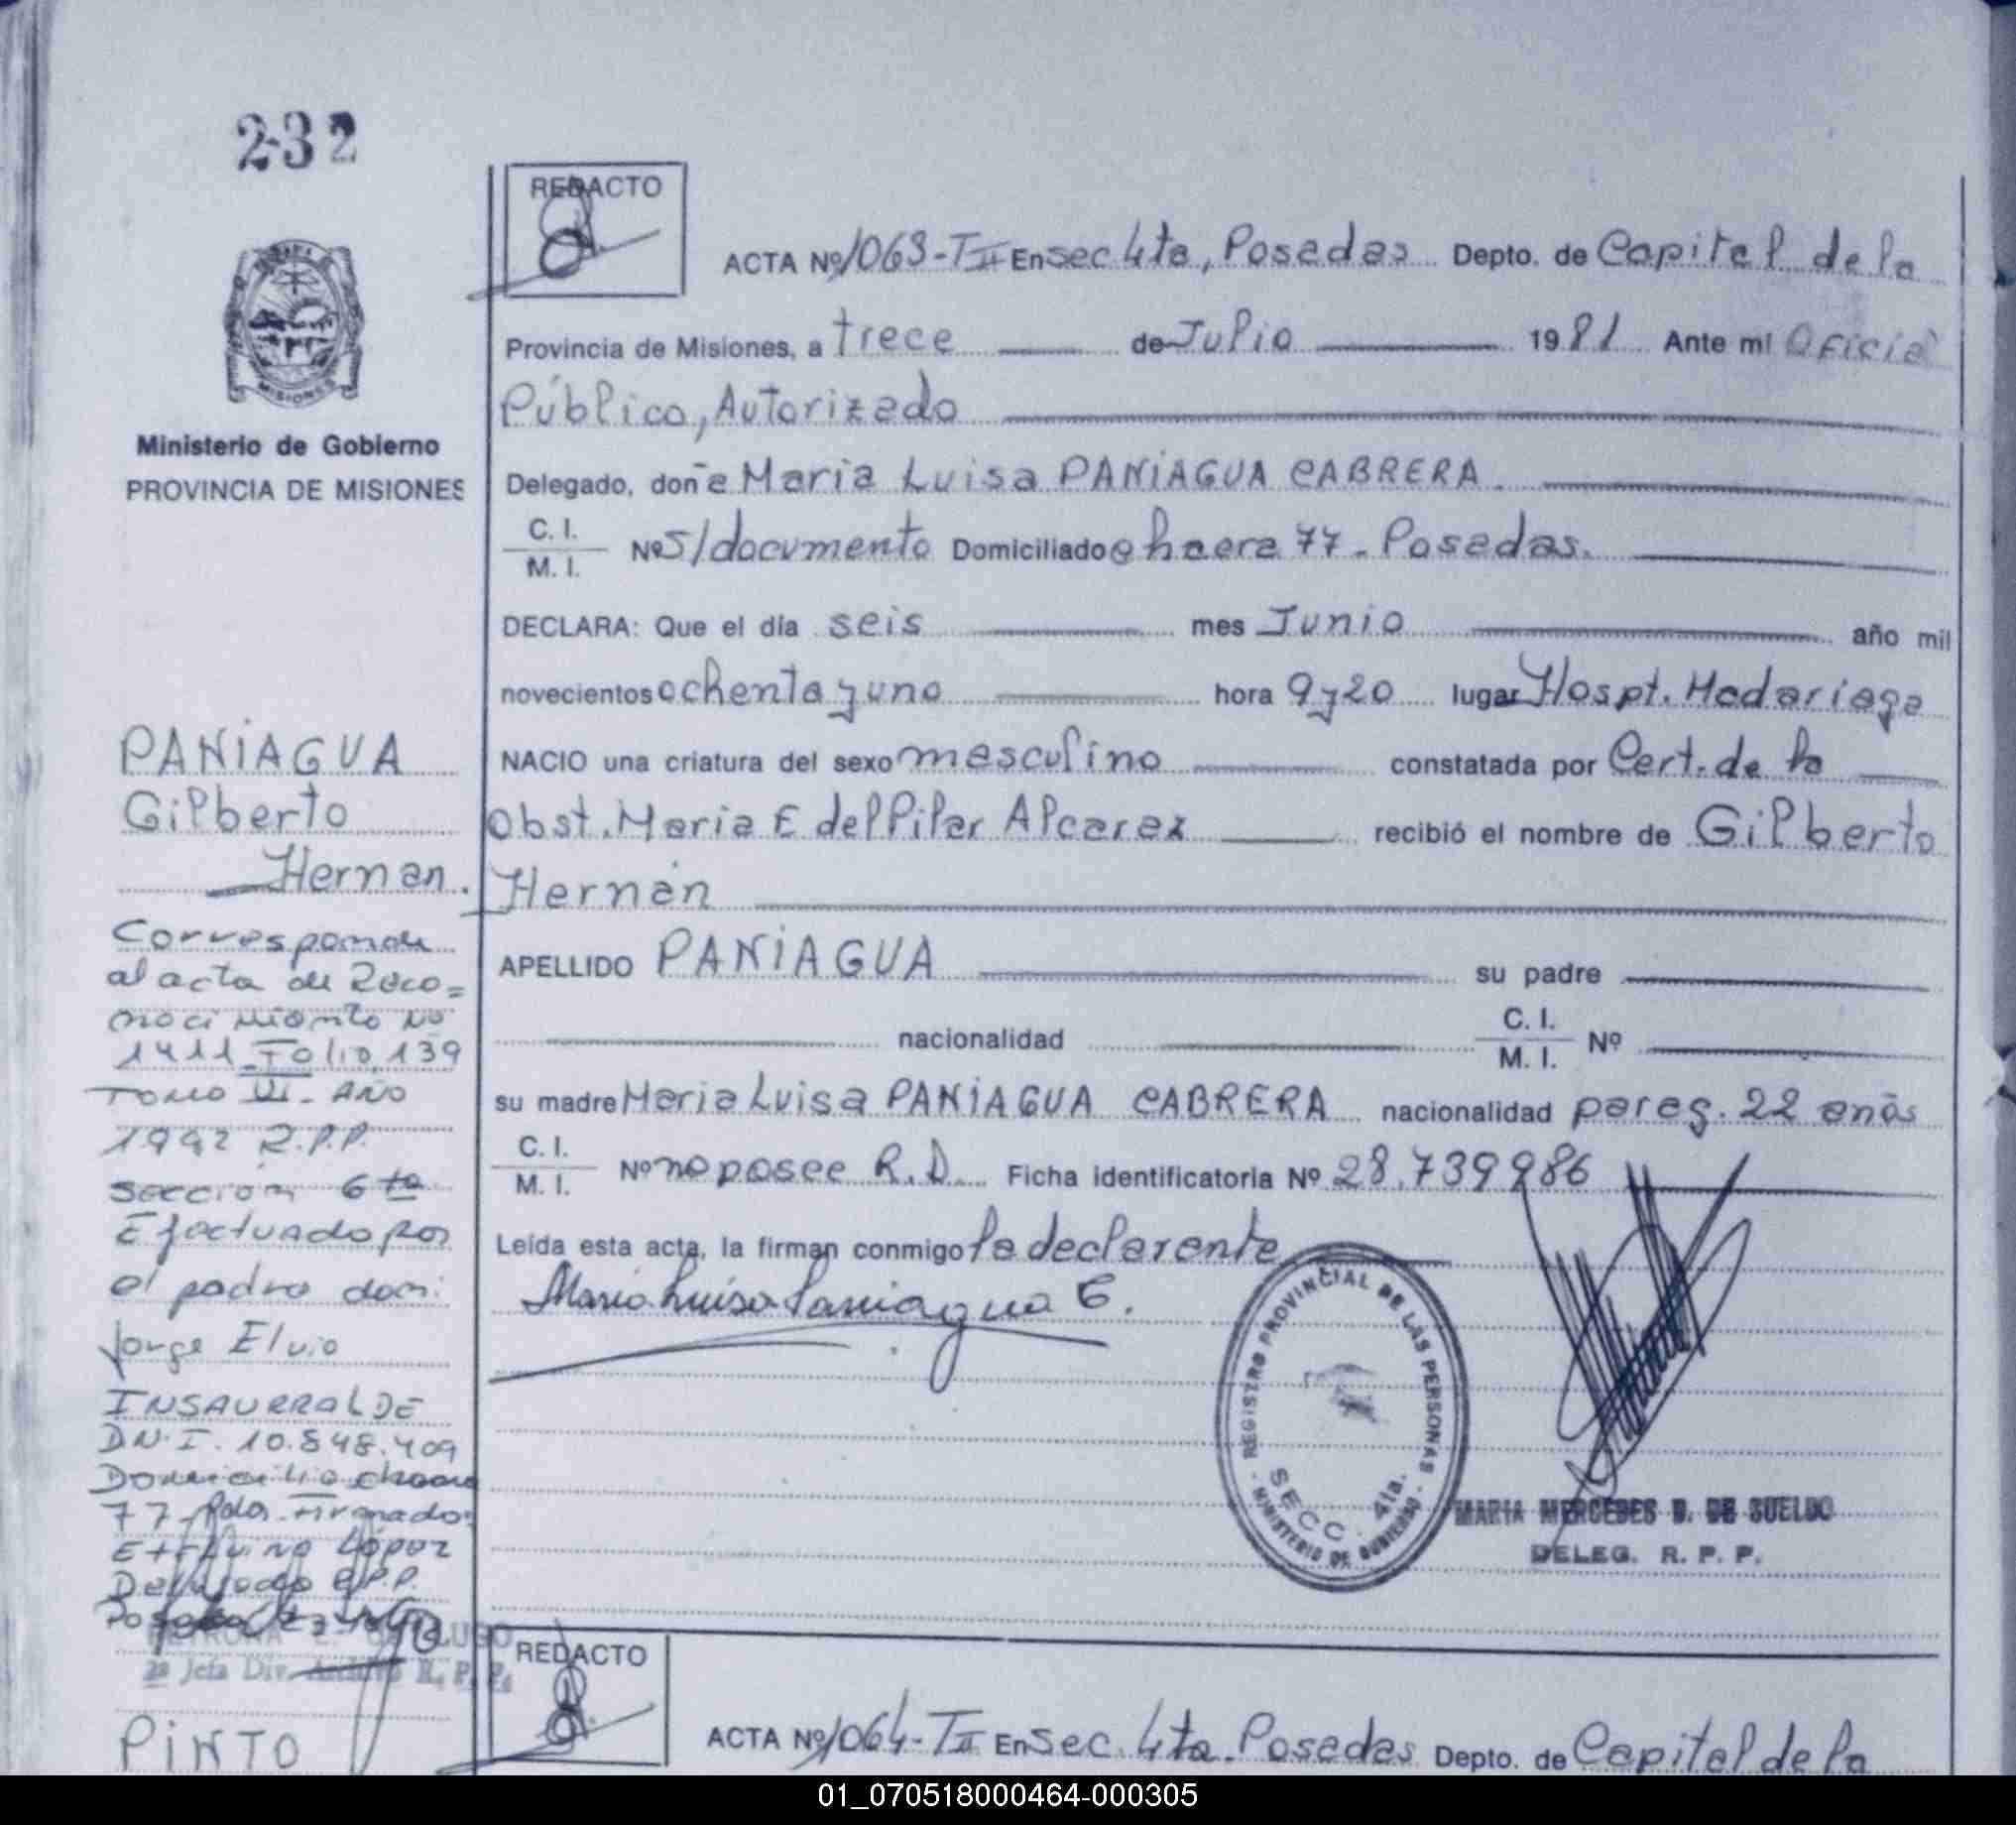 232
REDACTO
ACTA Nº 1063-TII En Sec 4ta, Posadas Depto. de Capital de la
Provincia de Misiones, a trece de Julio 1981 Ante mi Oficial
Público, Autorizado
Ministerio de Gobierno
PROVINCIA DE MISIONES
Delegado, doña Maria Luisa PANIAGUA CABRERA.
C. I.
M. I.
Nº S/documento Domiciliado chacra 77 - Posadas.
DECLARA: Que el día seis mes Junio año mil
novecientos ochenta y uno hora 9 y 20 lugar Hospt. Madariaga
NACIO una criatura del sexo masculino constatada por Cert. de la
Obst. Maria E del Pilar Alcaraz recibió el nombre de Gilberto
Hernán
APELLIDO PANIAGUA su padre
nacionalidad C. I.
M. I. Nº
su madre Maria Luisa PANIAGUA CABRERA nacionalidad parag. 22 años
C. I.
M. I.
Nº no posee R.D. Ficha identificatoria Nº 28.739986
Leída esta acta, la firman conmigo la declarante
Maria Luisa Paniagua C.
REGISTRO PROVINCIAL DE LAS PERSONAS
SECC. 4ta.
MINISTERIO DE GOBIERNO
MARIA MERCEDES B. DE SUELDO
DELEG. R. P. P.
PANIAGUA
Gilberto
Hernan.
Corresponde
al acta de Reco=
nocimiento Nº
1411 Folio 139
Tomo III - AÑO
R.P.P.
Sección 6ta
Efectuado por
el padre don:
Jorge Elvio
INSAURRALDE
D.N.I. 10.848.409
Domicilio chacra
77 - Pdas. Firmado:
López
Delegado R.P.P.
2ª Jefa Div. Archivo R. P. P.
PINTO
REDACTO
ACTA Nº 1064-TII En Sec. 4ta. Posadas Depto. de Capital de la
01_070518000464-000305